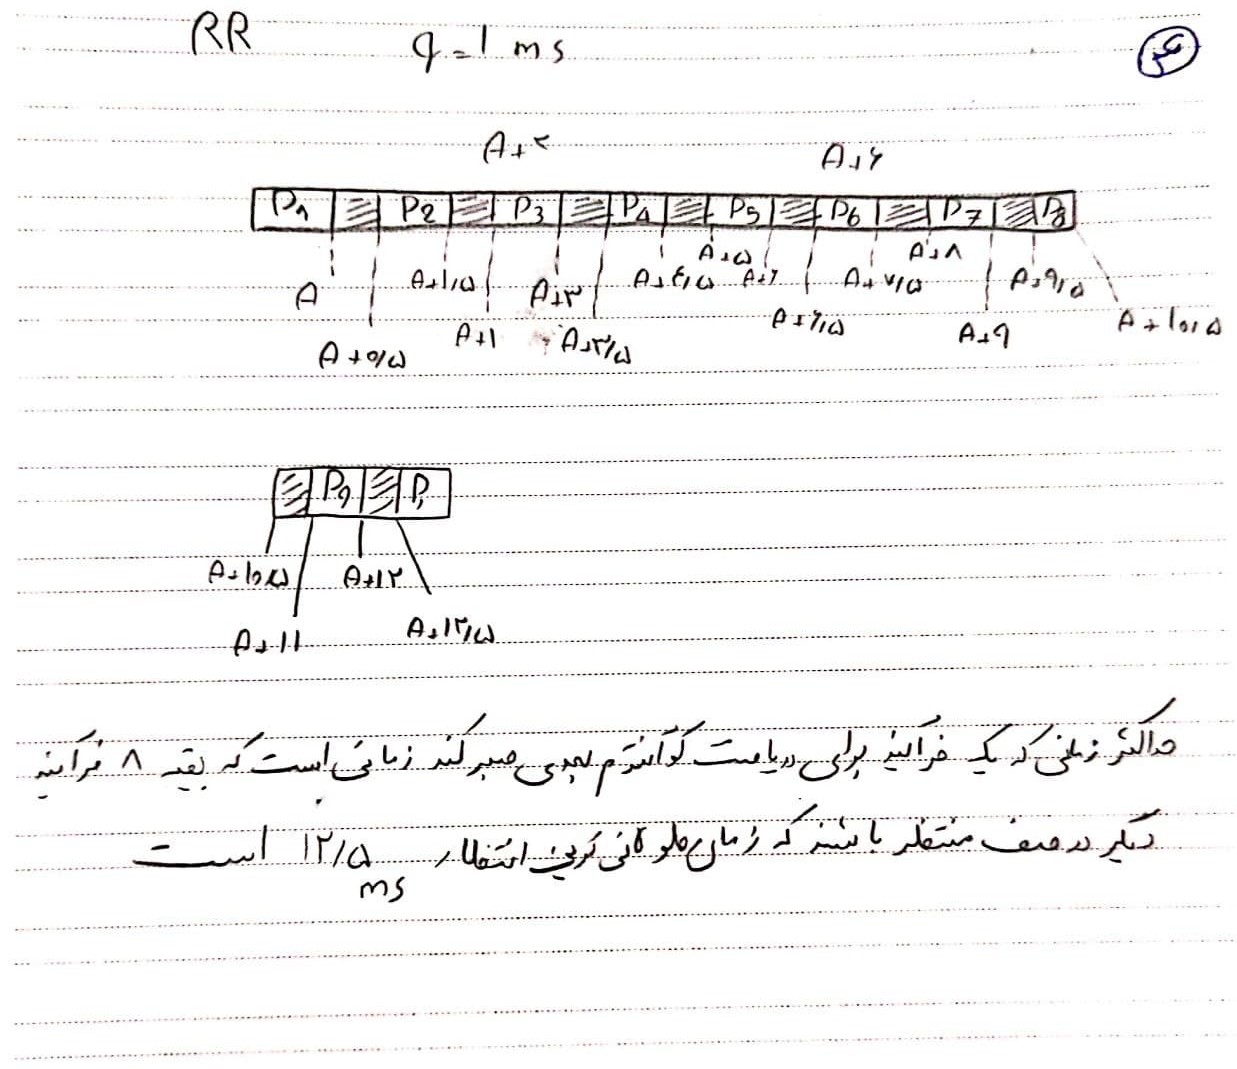 RR q=1 ms ۴
A+۲ A+۶
P1 P2 P3 P4 P5 P6 P7 P8
A A+۱/۵ A+۳ A+۴/۵ A+۵ A+۶ A+۷/۵ A+۸ A+۹/۵
A+۰/۵ A+۱ A+۳/۵ A+۶/۵ A+۹ A+۱۰/۵
P9 P1
A+۱۰/۵ A+۱۲
A+۱۱ A+۱۲/۵
حداکثر زمانی که یک فرآیند برای دریافت کوآنتوم بعدی صبر کند زمانی است که بقیه ۸ فرآیند
دیگر در صف منتظر باشند که زمان طولانی ترین انتظار ۱۲/۵ است
ms